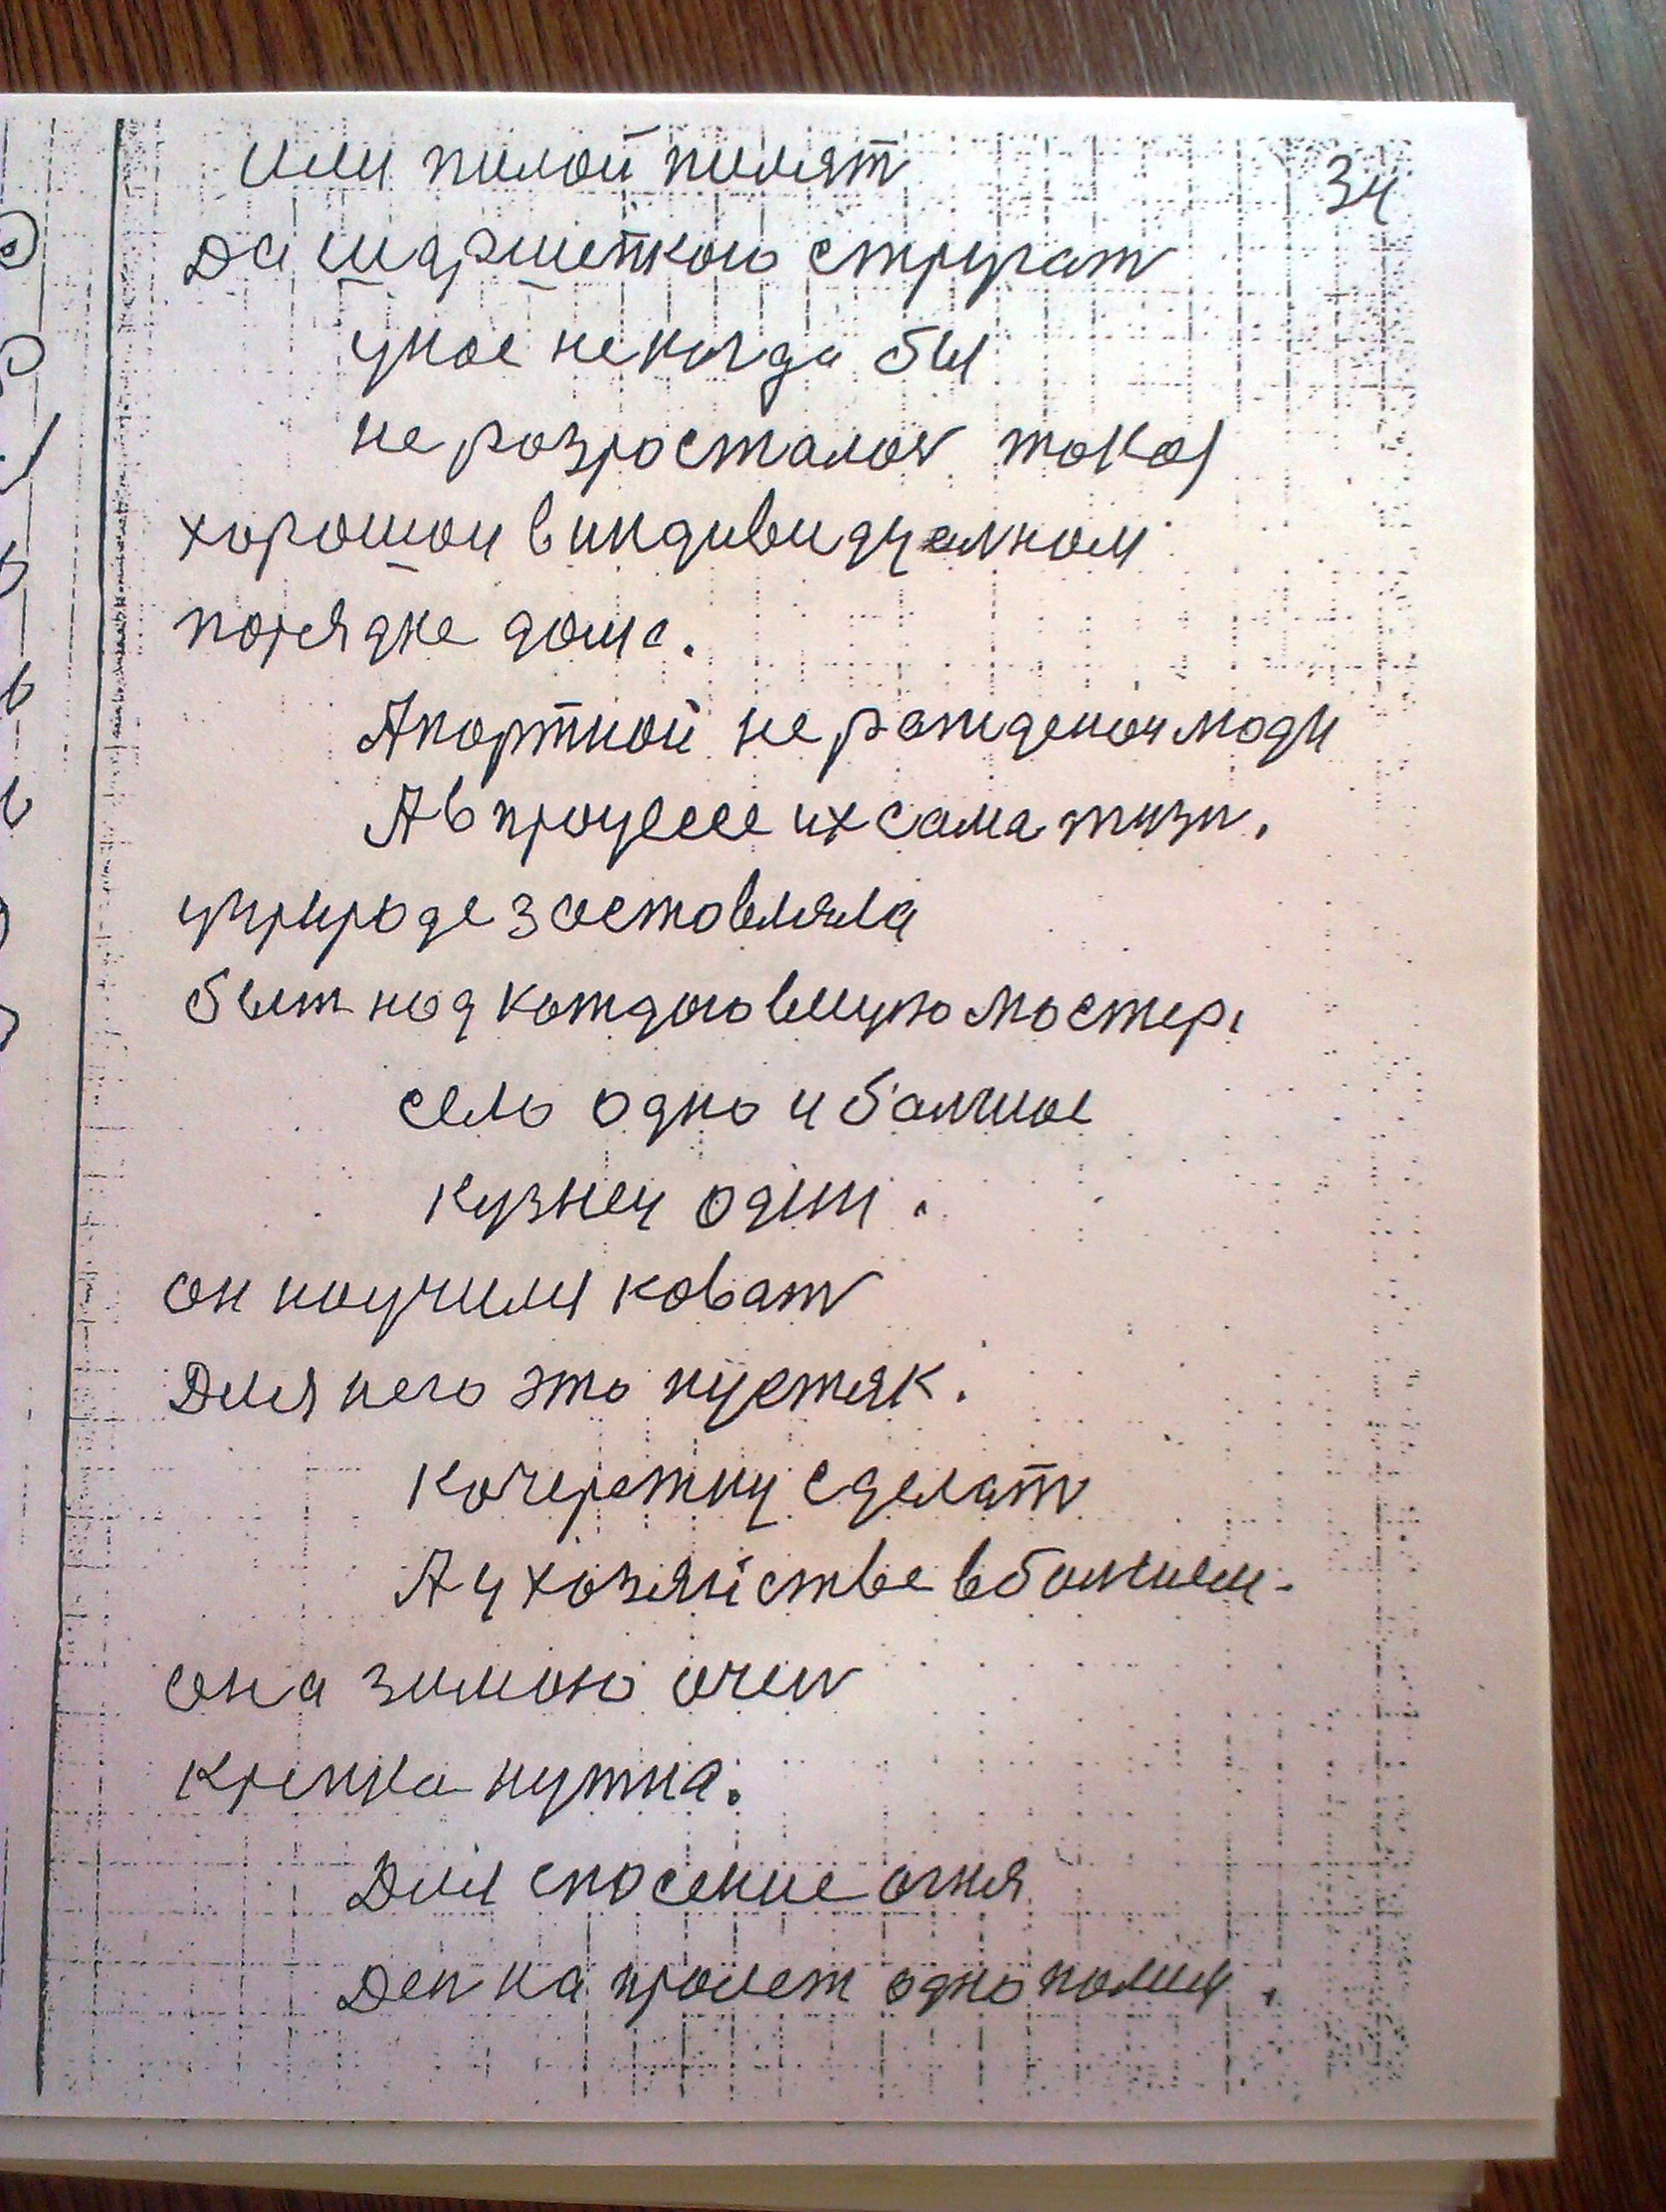 или пилой пилят
34
Да шаршепкою стругат
умое некогда бы
не розросталоь такая
хорошои в индивидуалном
порядке дома.
А портной не рожденои моди
А в процессе их сама жизн.
у природе зостовляла
быт над каждою вещую мостер.
село одно и балшое
кузнец один.
он научился ковать
Для него это пустяк.
кочережку сделат
А у хозяйстве в балшем.
она зимою очен
крепка нужна.
Для спосение огня
Ден на пролет одно полым.